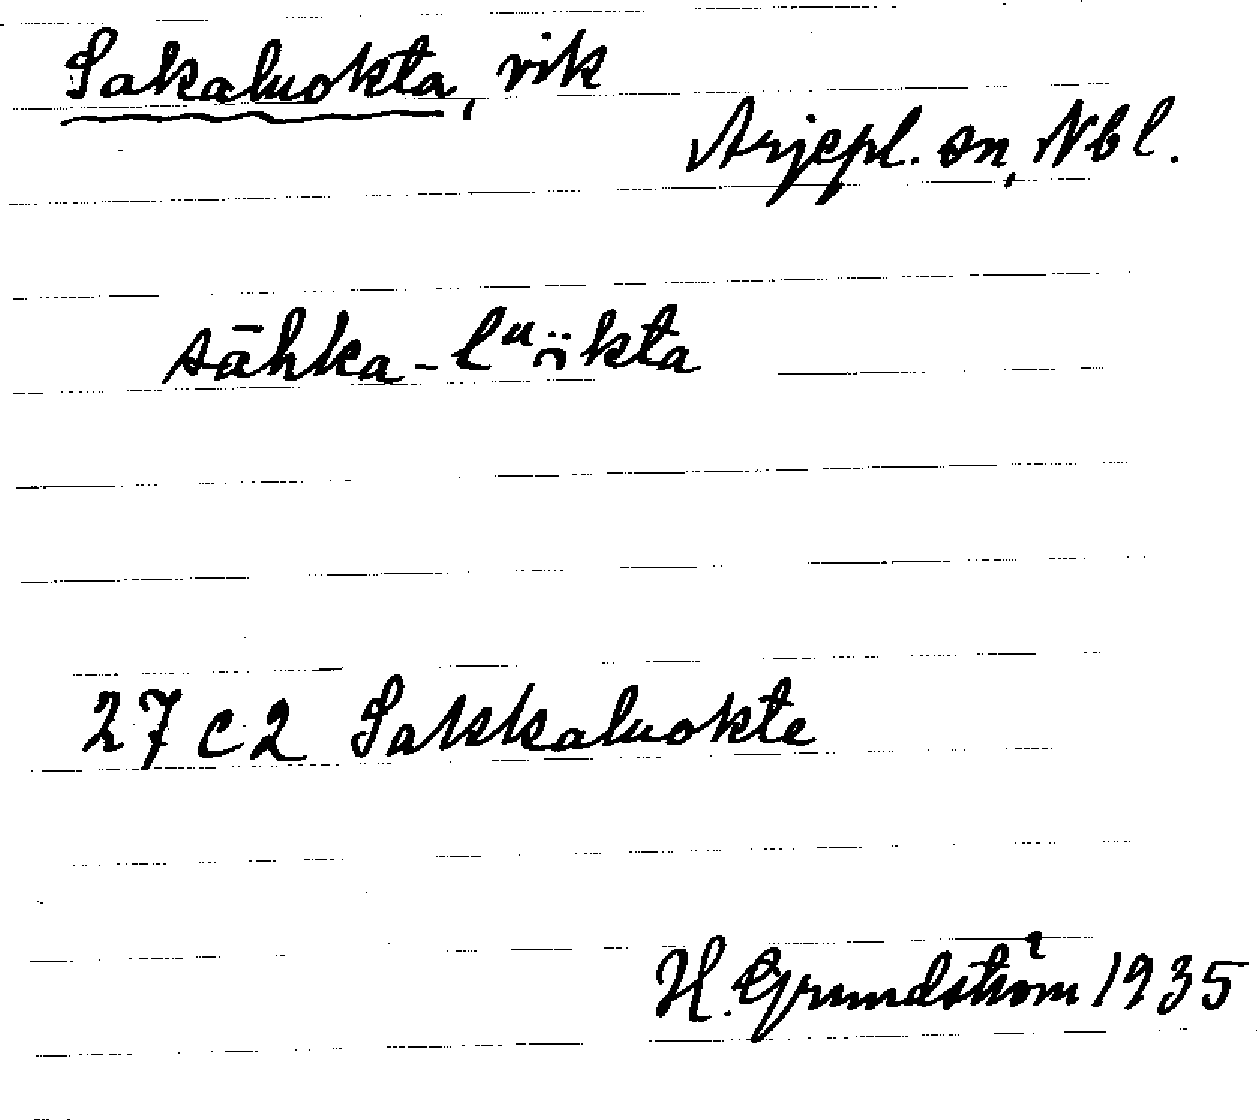 Sakaluokta, vik
Arjepl. sn, Nbl.
sāhka-lᵘökta
27 C 2 Sakkaluokte
H. Grundström 1935